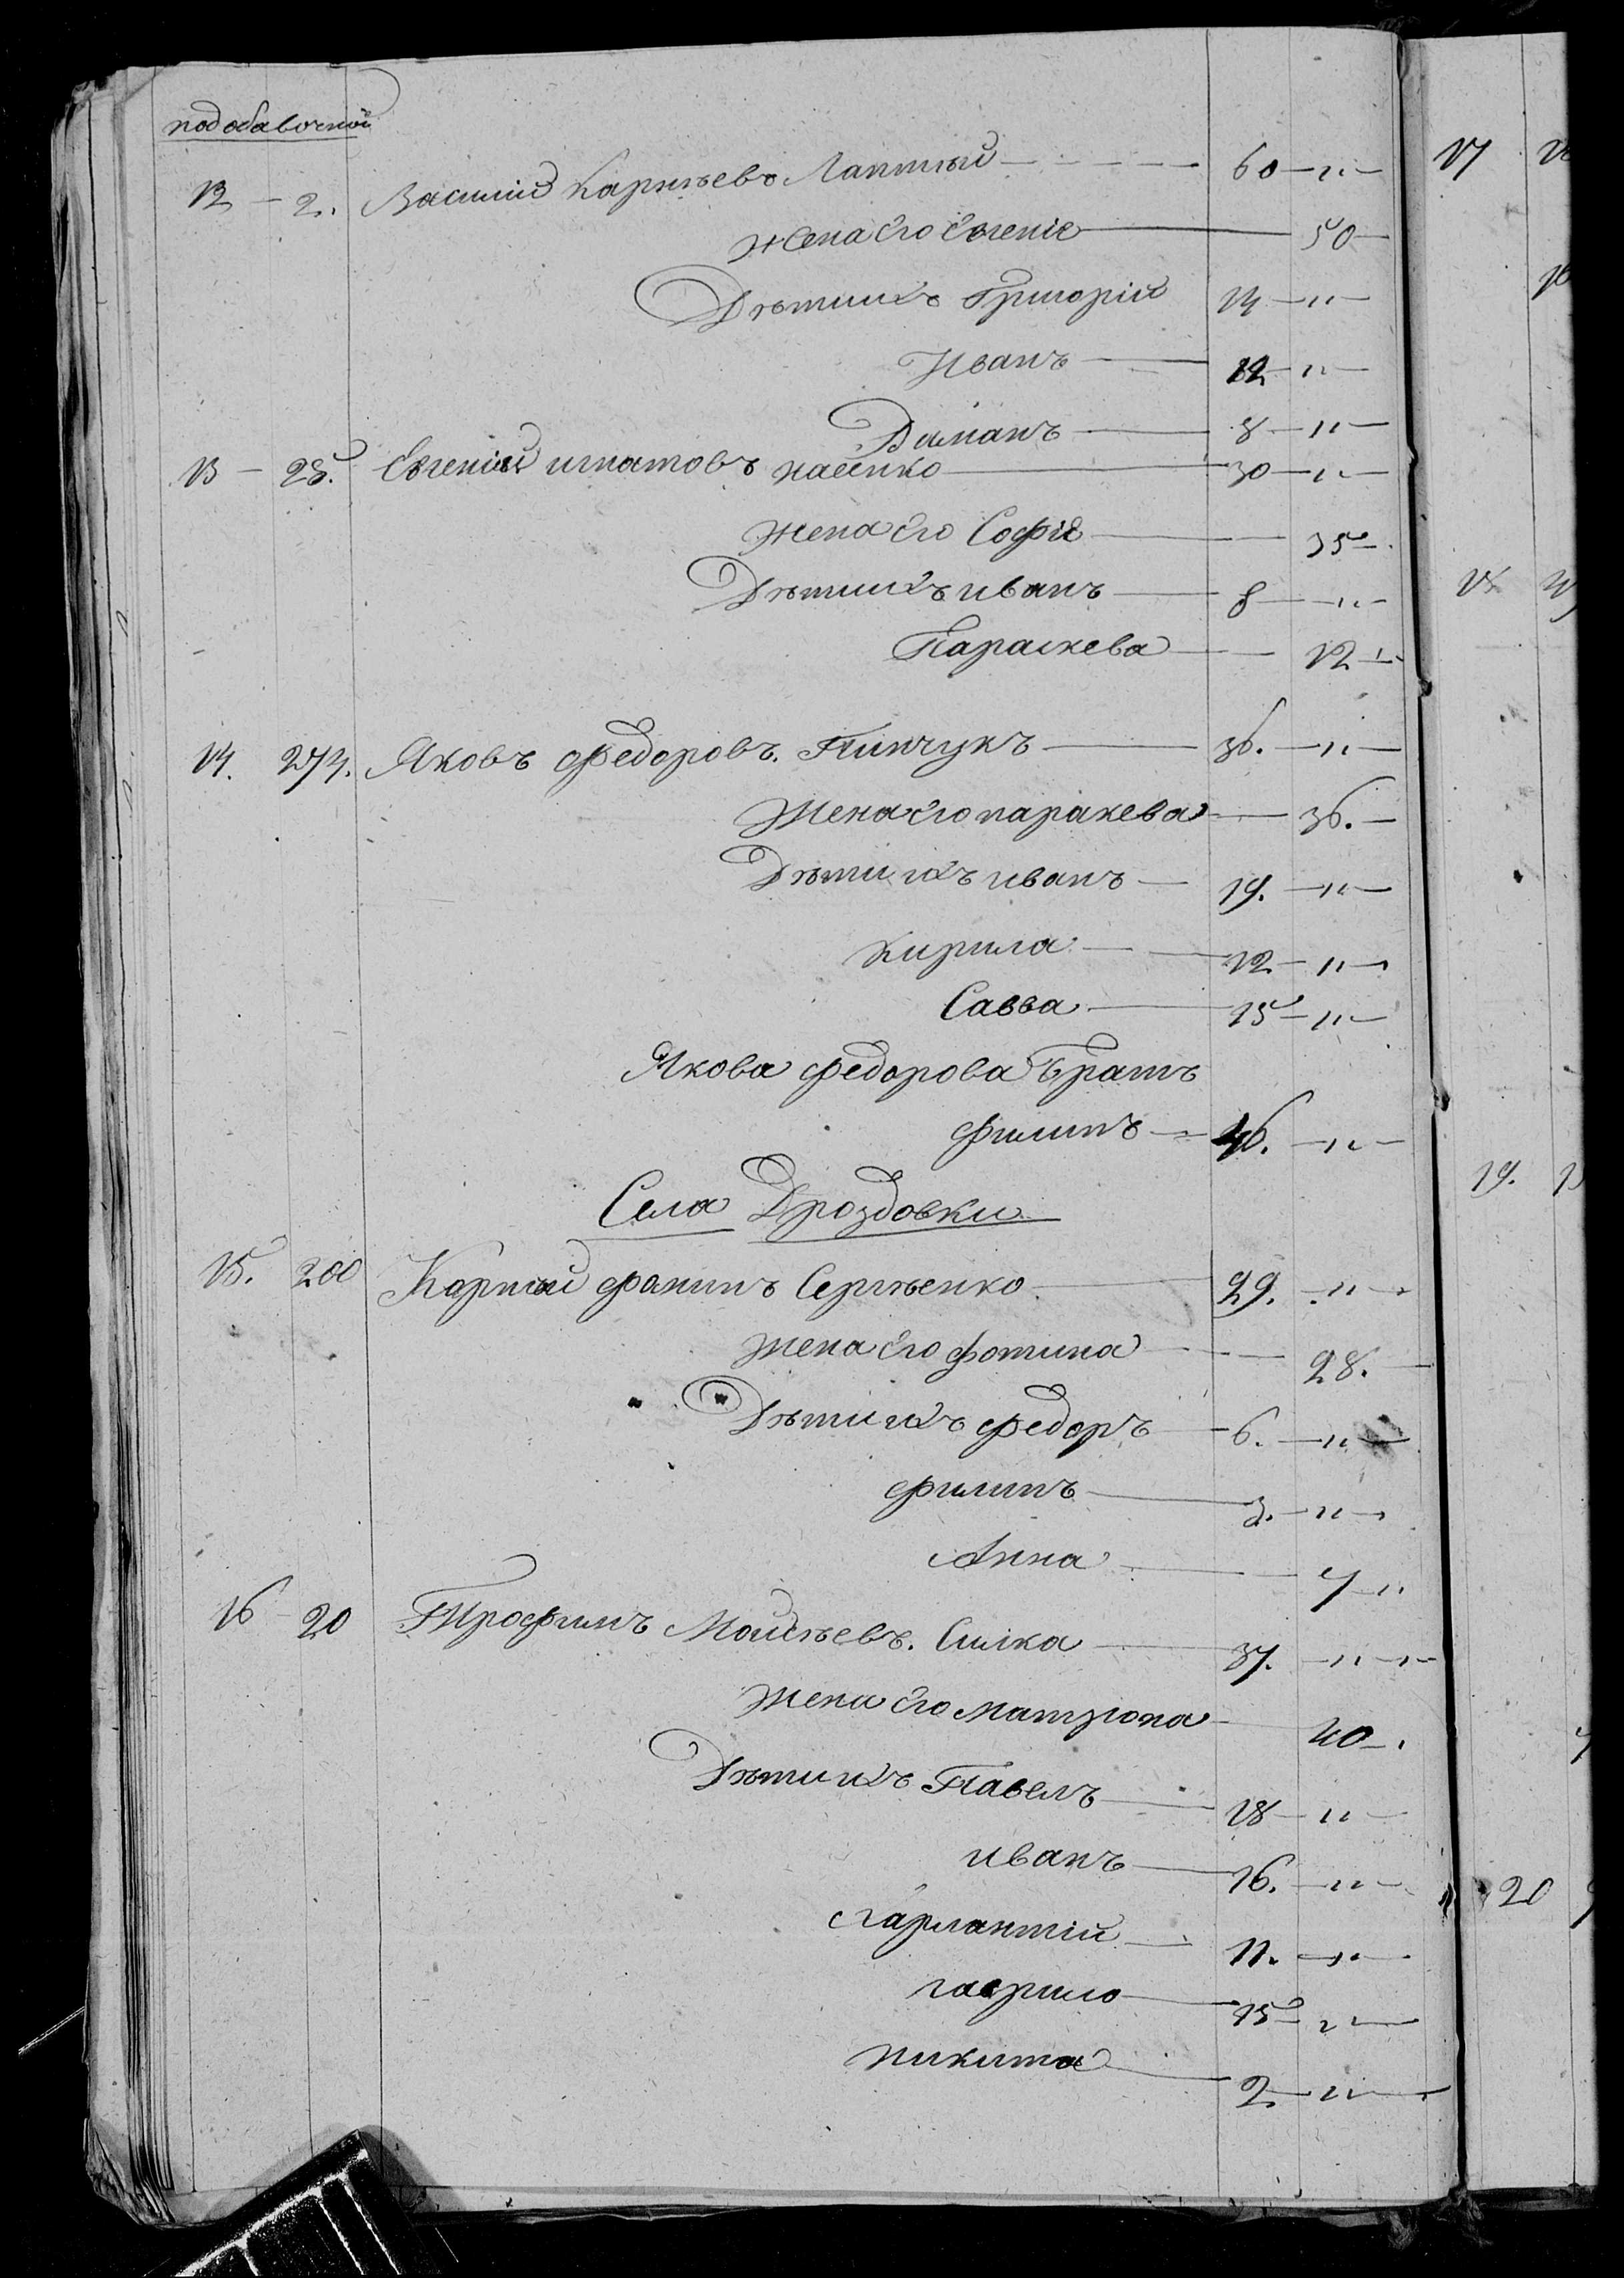 подобавочной
12 — 2. Василий Карпѣевъ Лаптый — 60 — " —
жена Его Евгенiе — 50 —
Дѣти ихъ Григорiй 14 — " —
Иванъ — 12 — " —
Диманъ — 8 — " —
13 — 25. Евгенiй игнатовъ — 30 — " —
жена Его Софiе — 35 —
Дѣти ихъ иванъ — 8 — " —
Параскева — 12 —
14. 274. Яковъ Федоровъ. Пинчукъ — 36. — " —
Жена Его паракева — 36. —
Дѣти ихъ иванъ — 19. — " —
Кирила — 12 — " —
Савва — 15 — " —
Якова Федорова братъ
филипъ — 46. — " —
Села Дроздовки
15. 200 Карпый Фапипъ Сергѣенко — 29. — " —
жена Его фотина — 28. —
Дѣти ихъ федоръ — 6. — " —
филипъ — 3. — " —
Анна — 7 — "
16 — 20 Трофимъ Моисѣевъ. Силка — 37. — " —
жена Его матрiона — 40 —
Дѣти ихъ Павелъ — 18 — " —
иванъ — 16. — " —
Харлантiй — 11. — " —
гаврило — 15 — " —
никита — 2 — " —
17
18
19.
20